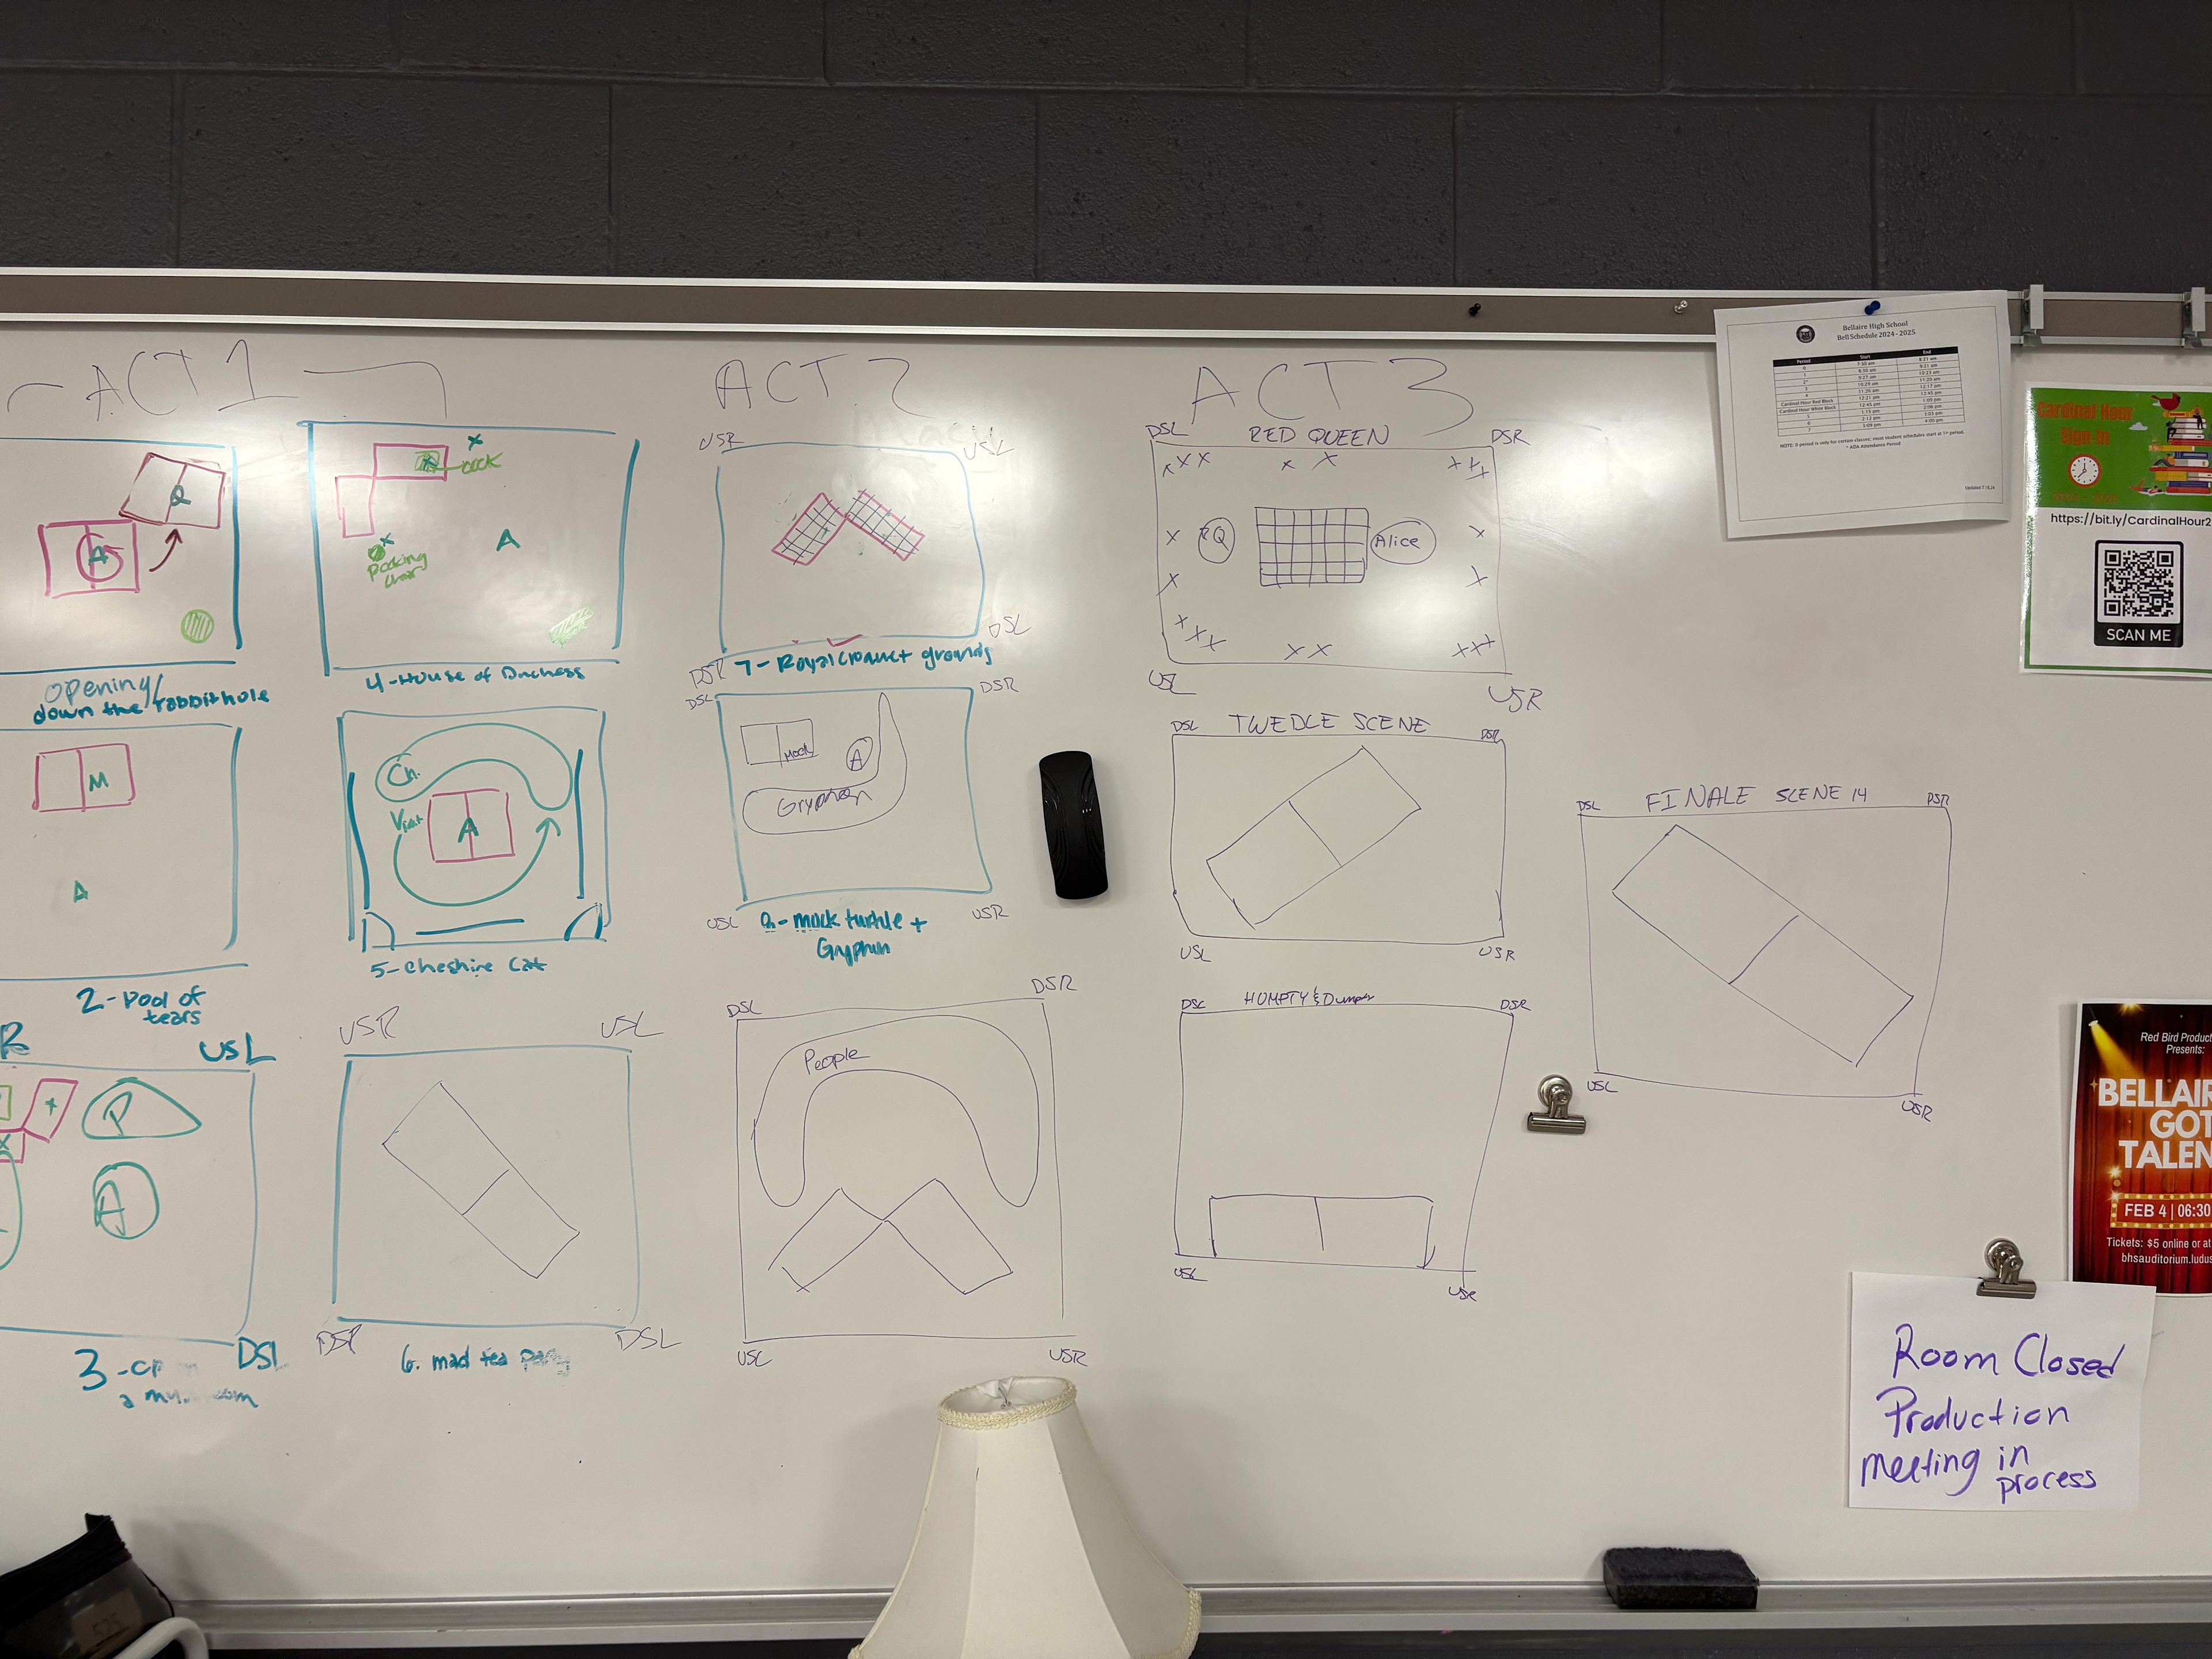 ACT 1
ACT 2
ACT 3
Q
A
opening/
down the rabbit hole
COOK
A
Rocking
chair
4-House of Duchess
M
A
2-Pool of
tears
Ch.
A
5-Cheshire Cat
USL
P
A
DSL
3-
a
USR
USL
DSR
DSL
6. mad tea party
USR
USL
DSR
DSL
7-Royal croquet grounds
DSL
DSR
Mock
A
Gryphon
USL
USR
8-mock turtle +
Gryphon
DSL
DSR
People
USL
USR
DSL
RED QUEEN
DSR
RQ
Alice
USL
USR
DSL
TWEDLE SCENE
DSR
USL
USR
DSL
DSR
USL
USR
DSL
FINALE SCENE 14
DSR
USL
USR
Bellaire High School
Bell Schedule 2024-2025
Period
Start
End
Cardinal Hour
Sign-in
https://bit.ly/CardinalHour2
SCAN ME
Red Bird Product
Presents:
BELLAIR
GOT
TALEN
FEB 4 | 06:30
Tickets: $5 online or at
bhsauditorium.ludus
Room Closed
Production
meeting in
process